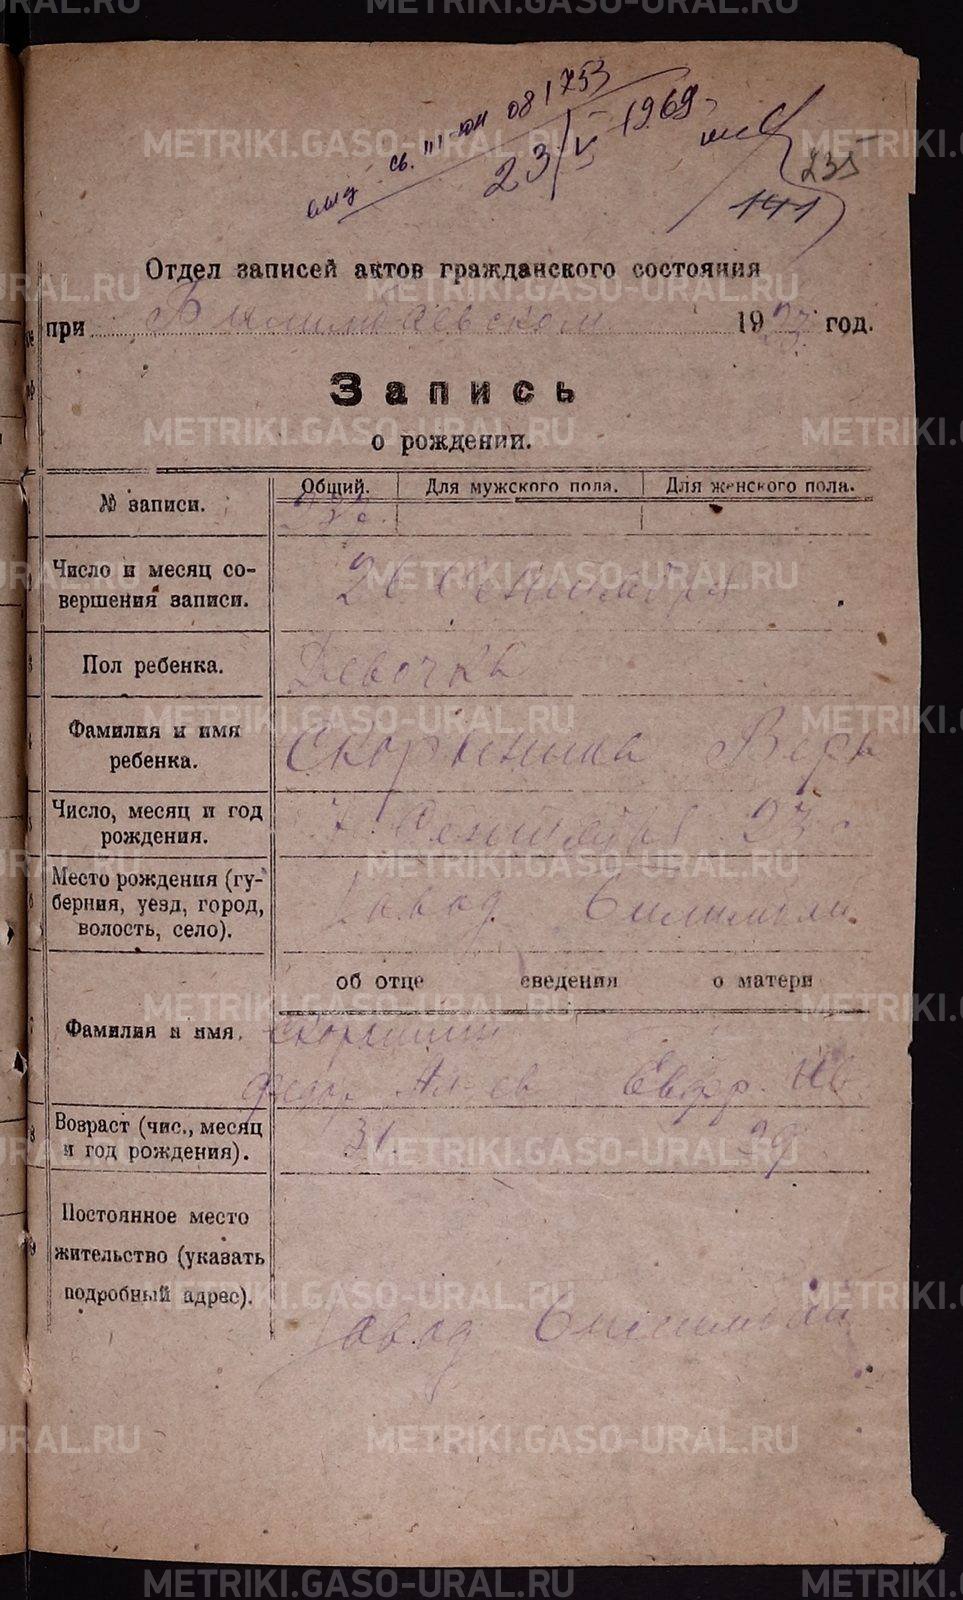 выд св. III-юн 081753
23/V-1969
235
141
Отдел записей актов гражданского состояния
при Билимбаевском 1923 год.
Запись
о рождении.
№ записи. Общий. Для мужского пола. Для женского пола.
Число и месяц со-
вершения записи. 26 Сентября
Пол ребенка. Девочка
Фамилия и имя
ребенка. Скорынина Вера
Число, месяц и год
рождения. 7 Сентября 23 г
Место рождения (гу-
берния, уезд, город,
волость, село). Завод Билимбай
об отце сведения о матери
Фамилия и имя. Скорынин
Федор Ал-ев Евфр. Ив.
Возраст (чис., месяц
и год рождения). 31. 39
Постоянное место
жительство (указать
подробный адрес).
Завод Билимбай
METRIKI.GASO-URAL.RU